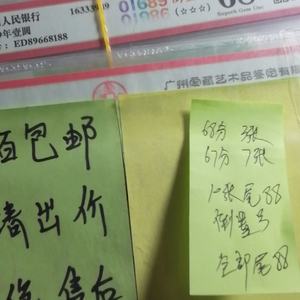 16333989
01689
01986
(☆☆☆)
Superb Gem Unc
人民银行
9年壹圆
ED89668188
广州爱藏艺术品鉴定有限
百包邮
请出价
售后
68分 3张
67分 7张
10张尾88
倒置号
全部尾88